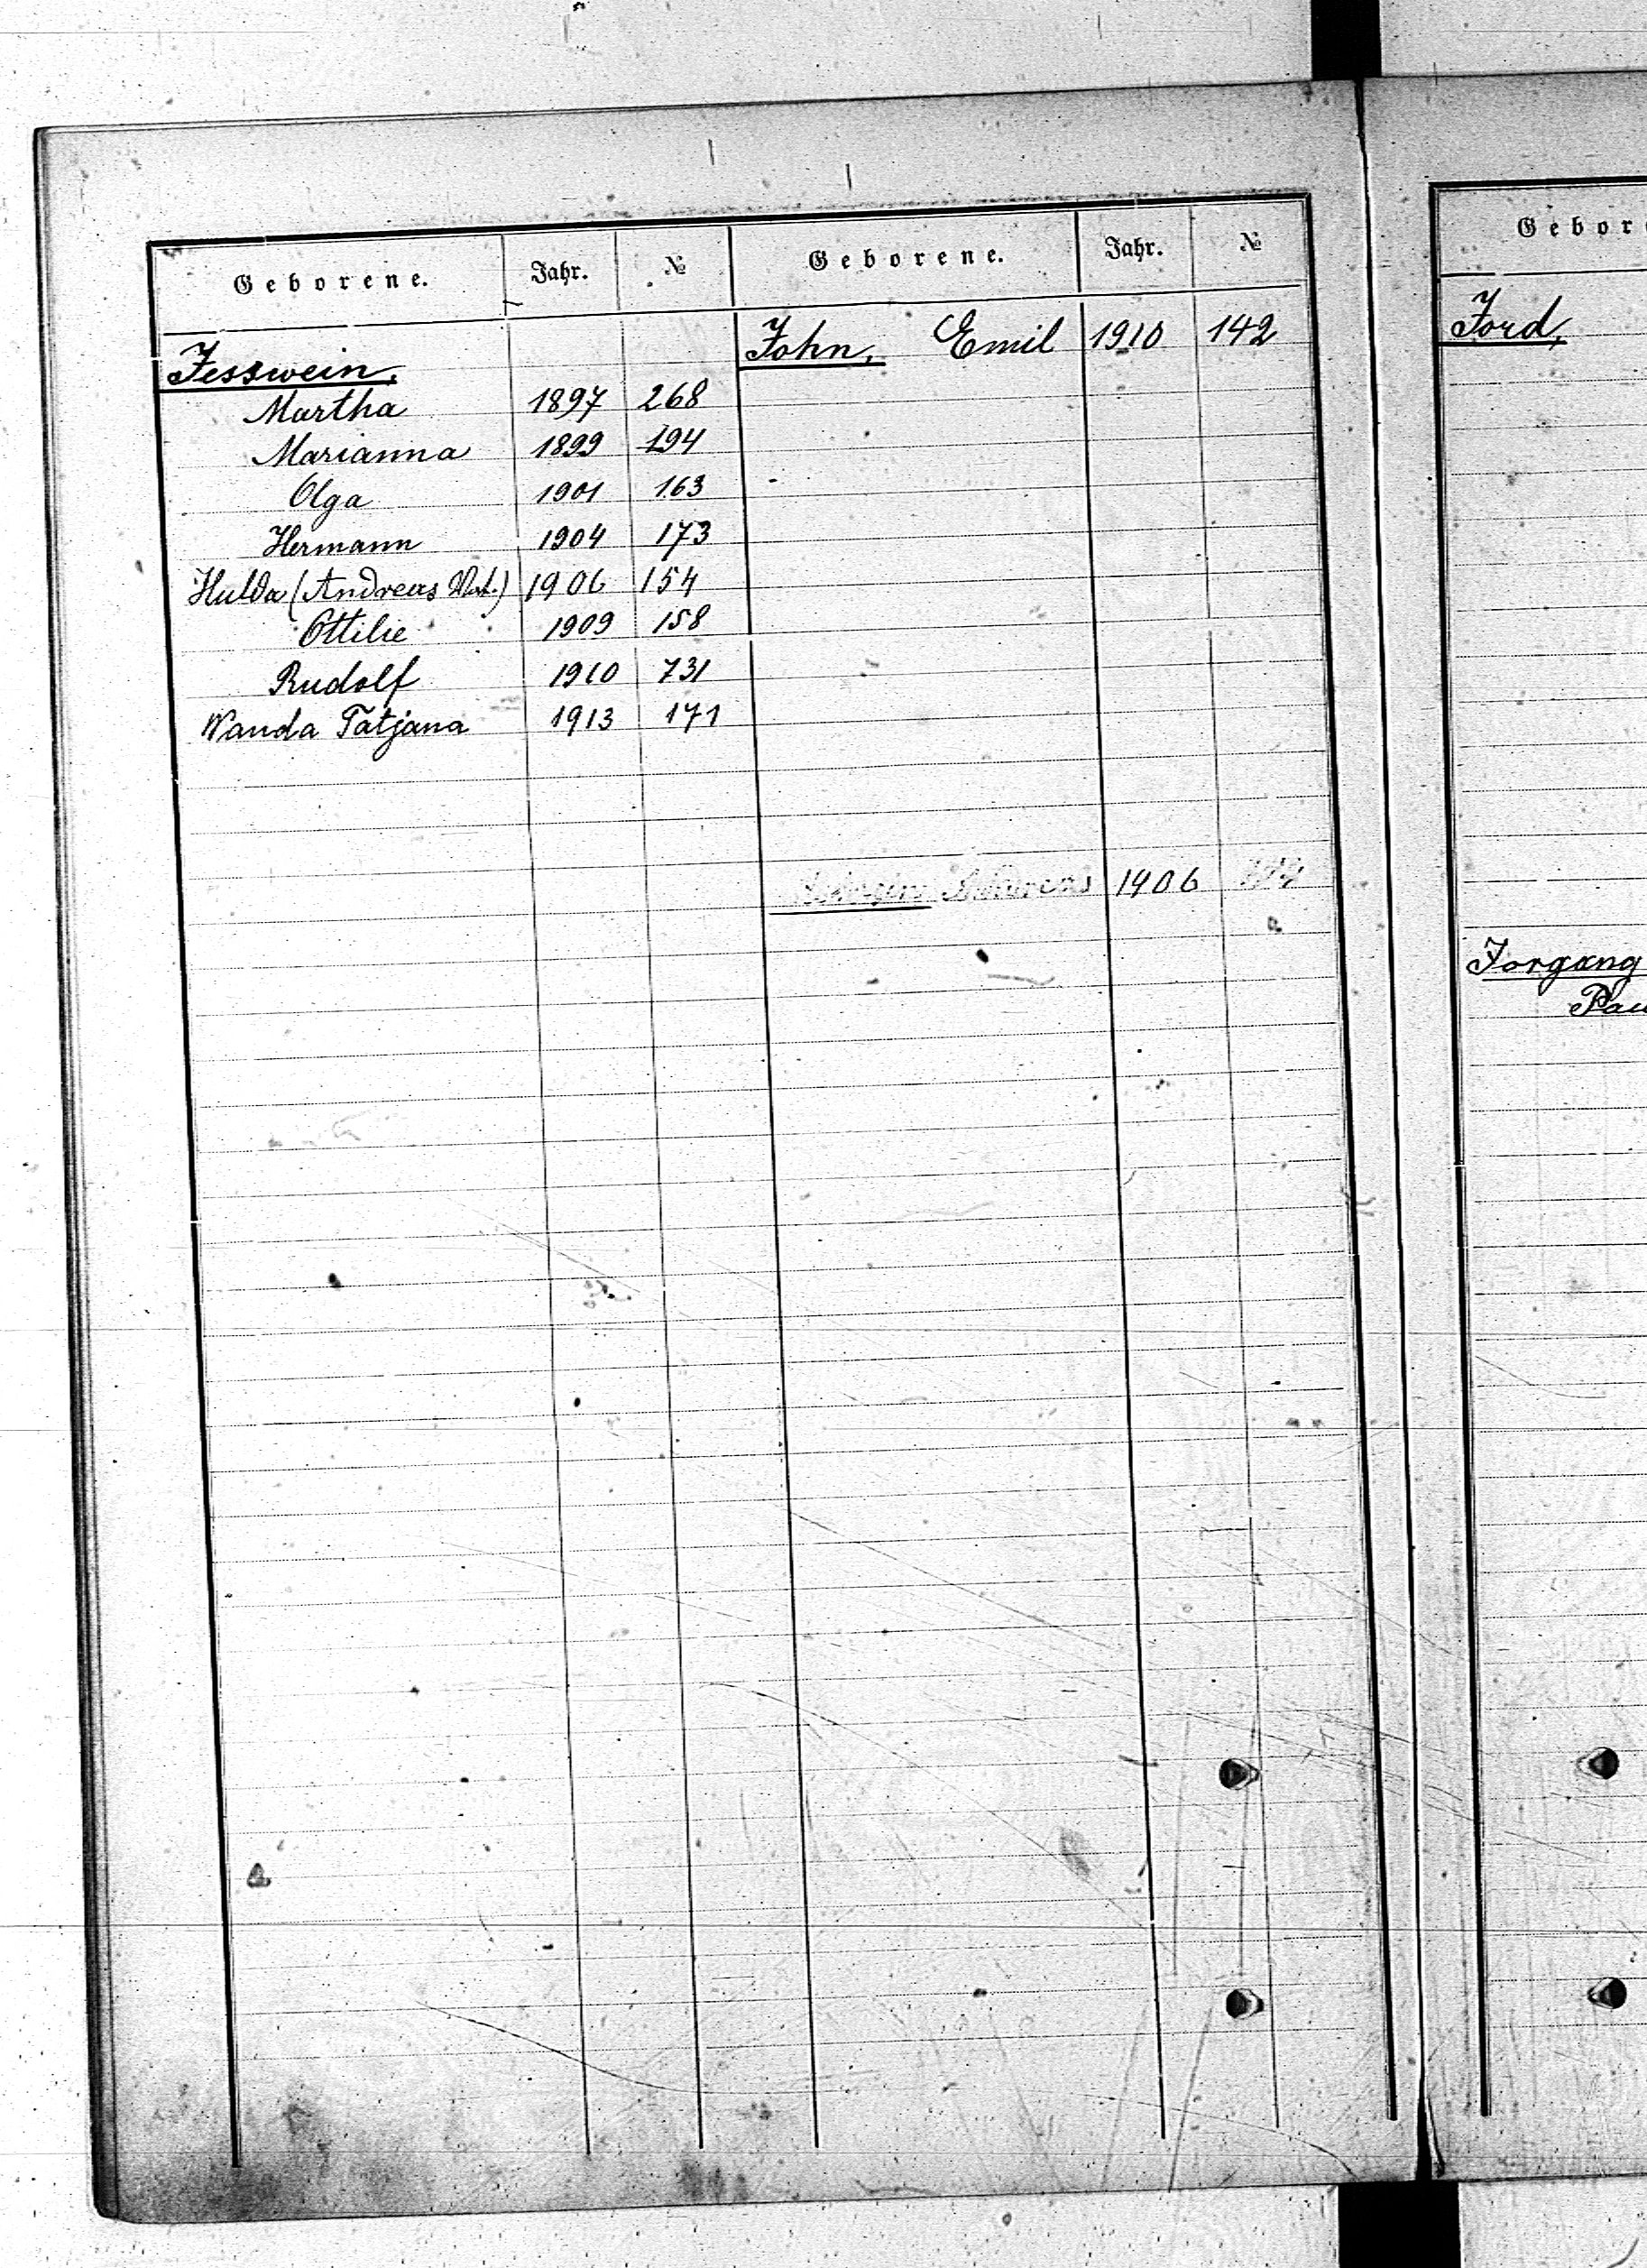 Geborene. Jahr. №
Jesswein,
Martha 1897 268
Marianna 1899 194
Olga 1901 163
Hermann 1904 173
Hulda (Andreas 1906 154
Ottilie 1909 158
Rudolf 1910 731
Wanda Tatjana 1913 171
Geborene. Jahr. №
John, Emil 1910 142
1906
Gebor
Jord,
Jorgang
Pau